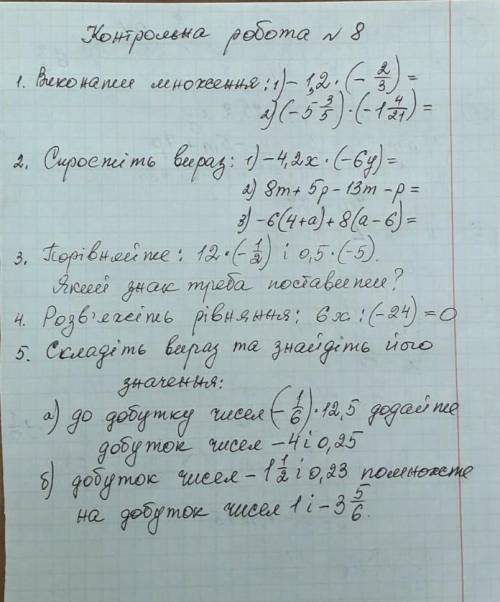 Контрольна робота №8
1. Виконати множення: 1) -1,2 · (-2/3) =
2) (-5 3/5) · (-1 4/21) =
2. Спростіть вираз: 1) -4,2x · (-6y) =
2) 8m + 5p - 13m - p =
3) -6(4+a) + 8(a-6) =
3. Порівняйте: 12 · (-1/2) і 0,5 · (-5).
Який знак треба поставити?
4. Розв'яжіть рівняння: 6x : (-24) = 0
5. Складіть вираз та знайдіть його
значення:
а) до добутку чисел (-1/6) · 12,5 додайте
добуток чисел -4 і 0,25
б) добуток чисел -1 1/2 і 0,23 помножте
на добуток чисел 1 і -3 5/6.